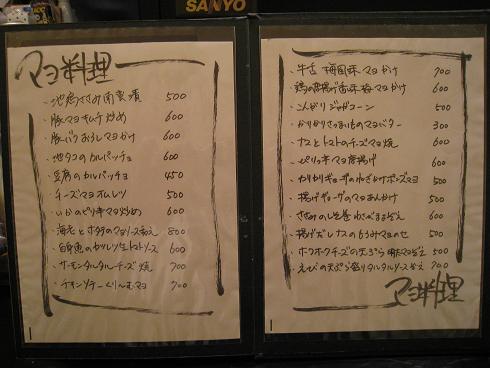 SANYO
マヨ料理
・地鶏ささみ南蛮漬 500
・豚マヨキムチ炒め 600
・豚バラおろしマヨかけ 600
・地タコのカルパッチョ 600
・豆腐のカルパッチョ 450
・チーズマヨオムレツ 500
・いかのピリ辛マヨ炒め 600
・海老とホタテのマヨソース和え 800
・白身魚のカツレツ生トマトソース 600
・サーモンタルタルチーズ焼 700
・チキンソテーくりーむマヨ 700
・牛舌 梅風味マヨかけ 700
・鶏の唐揚げ香味マヨかけ 600
・こんがりジャガコーン 500
・かりかりさつまいものマヨバター 300
・ナスとトマトのチーズマヨ焼 600
・ピリッ辛マヨ唐揚げ 600
・かりかりギョーザのねぎかけポンズマヨ 500
・揚げギョーザのマヨあんかけ 500
・ささみのしそ巻わさびマヨぞえ 600
・揚げだしナスのとろみマヨのせ 500
・ホクホクチーズの天ぷら 明太マヨぞえ 500
・えびの天ぷら盛りタルタルソースぞえ 700
マヨ料理